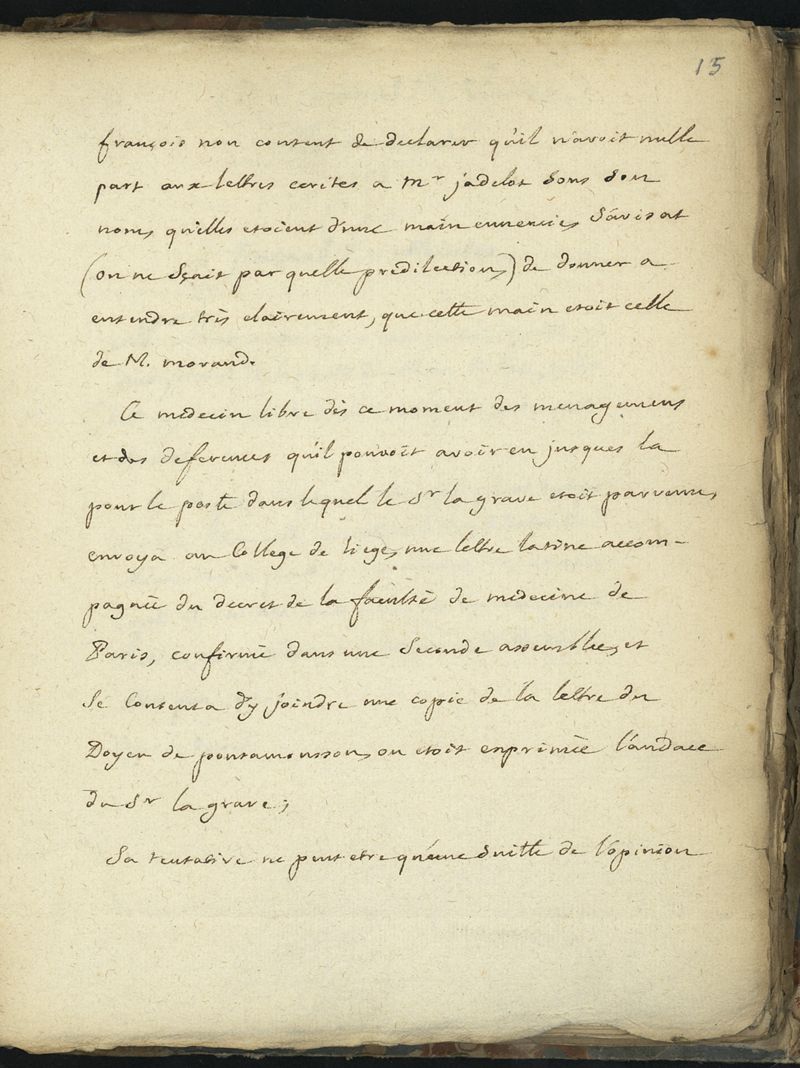 15
françois non content de declarer qu'il n'avoit nulle
part aux lettres ecrites a Mr jadelot sous son
nom, qu'elles etoient d'une main ennemie, s'avisat
(on ne sçait par quelle predilection,) de donner a
entendre très clairement, que cette main etoit celle
de M. morand.
Ce medecin libre dès ce moment des menagemens
et des deferences qu'il pouvoit avoir eu jusques la
pour le poste dans lequel le Sr la grave etoit parvenu,
envoya au College de Liege, une lettre latine accom-
pagnée du decret de la faculté de medecine de
Paris, confirmé dans une seconde assemblée, et
se contenta d'y joindre une copie de la lettre du
Doyen de pontamousson, ou etoit exprimée l'audace
du Sr la grave;
Sa tentative ne peut etre qu'une suitte de l'opinion